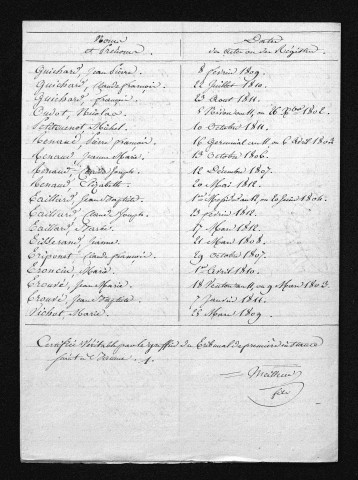 Noms et Prénoms. Dates des Actes ou des Registres
Guichard, Jean Pierre. 8 février 1809.
Guichard, Claude françois. 22 Juillet 1810.
Guichard, françois. 23 Aout 1811.
Oudot, Nicolas. 5 Nivose an 11, ou 26 Xbre 1802.
Petitcuenot Michel. 10 Octobre 1811.
Renaud, Pierre françois. 16 Germinal an 11, ou 6 Avril 1803.
Renaud, Jeanne Marie. 13 Octobre 1806.
Renaud, Claude Joseph. 12 Décembre 1807.
Renaud, Elizabeth. 20 Mai 1812.
Taillard, Jean Baptiste. 1er Messidor an 12, ou 20 Juin 1804.
Taillard, Claude Joseph. 23 février 1812.
Taillard, 17 Mars 1812.
Tisserand, Jeanne. 21 Mars 1808.
Triponet, Claude françois. 29 octobre 1807.
Troncin, Marie. 1er Avril 1810.
Trousé, Jean Marie. 18 Ventose an 11, ou 9 Mars 1803.
Trousé, Jean Baptiste. 7 Janvier 1811.
Vichot, Marie. 25 Mars 1809.
Certifié Véritable par le greffier du Tribunal de première instance
séant à